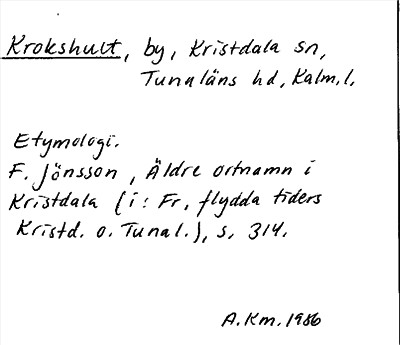 Krokshult, by, Kristdala sn,
Tunaläns hd, Kalm. l.
Etymologi.
F. Jönsson, Äldre ortnamn i
Kristdala (i: Fr. flydda tiders
Kristd. o. Tunal.), s. 314.
A.Km. 1986